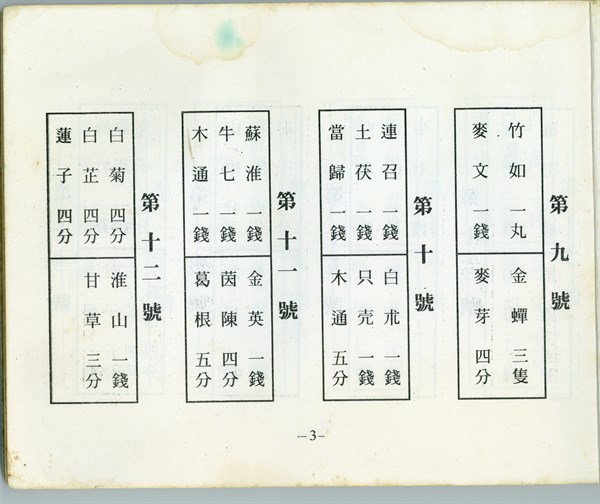 第九號
竹如一丸
麥文一錢
金蟬三隻
麥芽四分
第十號
連召一錢
土茯一錢
當歸一錢
白朮一錢
只壳一錢
木通五分
第十一號
蘇淮一錢
牛七一錢
木通一錢
金英一錢
茵陳四分
葛根五分
第十二號
白菊四分
白芷四分
蓮子四分
淮山一錢
甘草三分
–3–